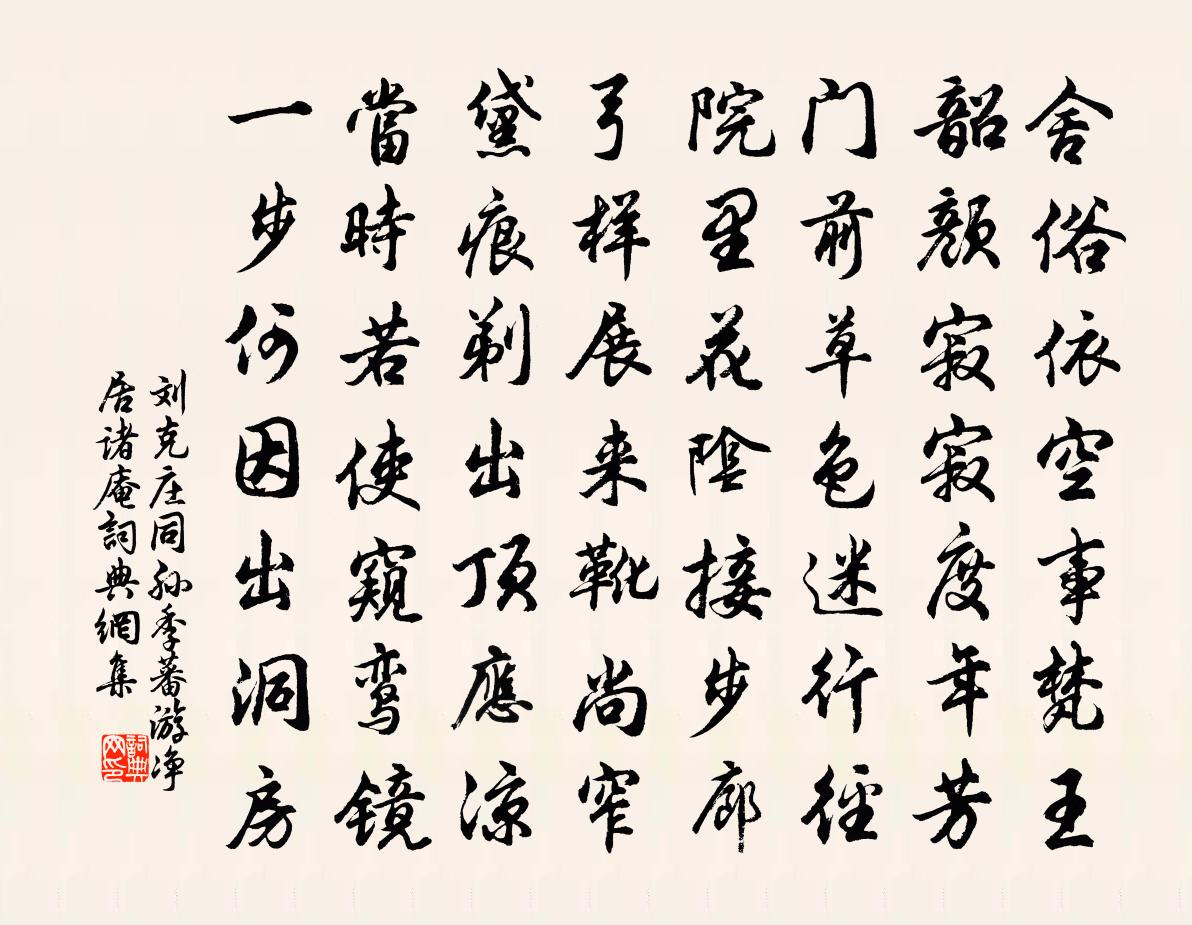 舍俗依空事梵王
韶颜寂寂度年芳
门前草色迷行径
院里花陰接步廊
弓样展来靴尚窄
黛痕剃出顶應凉
當時若使窺鸾镜
一步何因出洞房
刘克庄同孙季蕃游净
居诸庵詞典網集
詞典网印